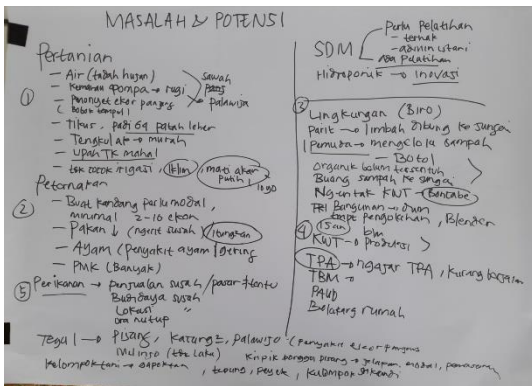 MASALAH & POTENSI
Pertanian
① - Air (tadah hujan)
- Kemarau pompa → rugi
sawah
palawija
- Penyakit ekor panjang
- Tikur, padi 69 patah leher
- Tengkulak → murah
- Upah TK mahal
- tdk cocok irigasi, iklim, mati akar putih
Petornakan
② - Buat kandang perlu modal,
minimal 2-10 ekor
- Pakan ↓ (ngirit susah)
- Ayam (Penyakit ayam) gering
- PMK (Banyak)
⑤ Perikanan → penjualan susah / pasar
Budidaya susah
Lokasi "
Tegal → Pisang, Karang, Palawija
Mlinjo (tdk laku) Kripik bongga pisang → modal, pemasaran
Kelompok tani → gapoktan, tepung, peyek, kelompok
SDM
Perlu Pelatihan
- ternak
- administrasi
Ada Pelatihan
Hidroponik → Inovasi
③ Lingkungan (Biro)
Parit → limbah dibuang ke sungai
Pemuda → mengelola sampah
- Botol
Organik belum tersentuh
Buang sampah ke sungai
KWT → Boncabe
Bangunan → daun
tmpt pengolahan, Blender
④ KWT → Produksi
TPA → ngajar TPA, kurang
TBM →
PAUD
Belakang rumah